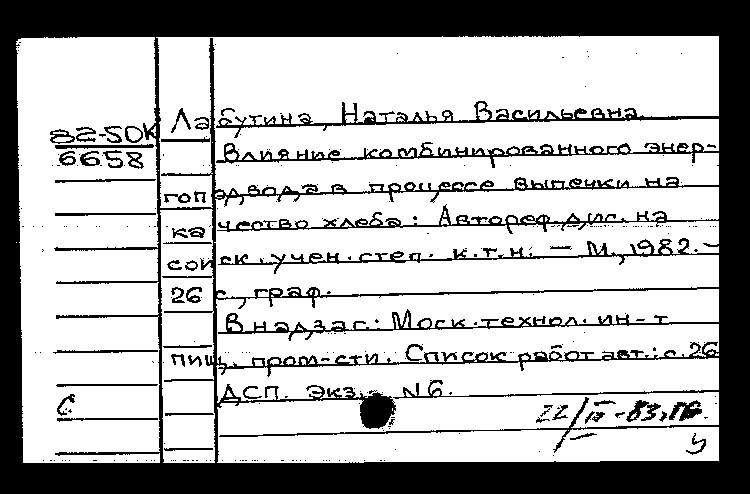 82-50К
6658
Лабутина, Наталья Васильевна
Влияние комбинированного энер-
гоподвода в процессе выпечки на
качество хлеба: Автореф.дис. на
соиск. учен. степ. к.т.н. — М., 1982.-
26 с., граф.
В надзаг.: Моск. технол. ин-т
пищ. пром-сти. Список работ авт.: с.26
ДСП. Экз. N6.
С
22/IV-83.